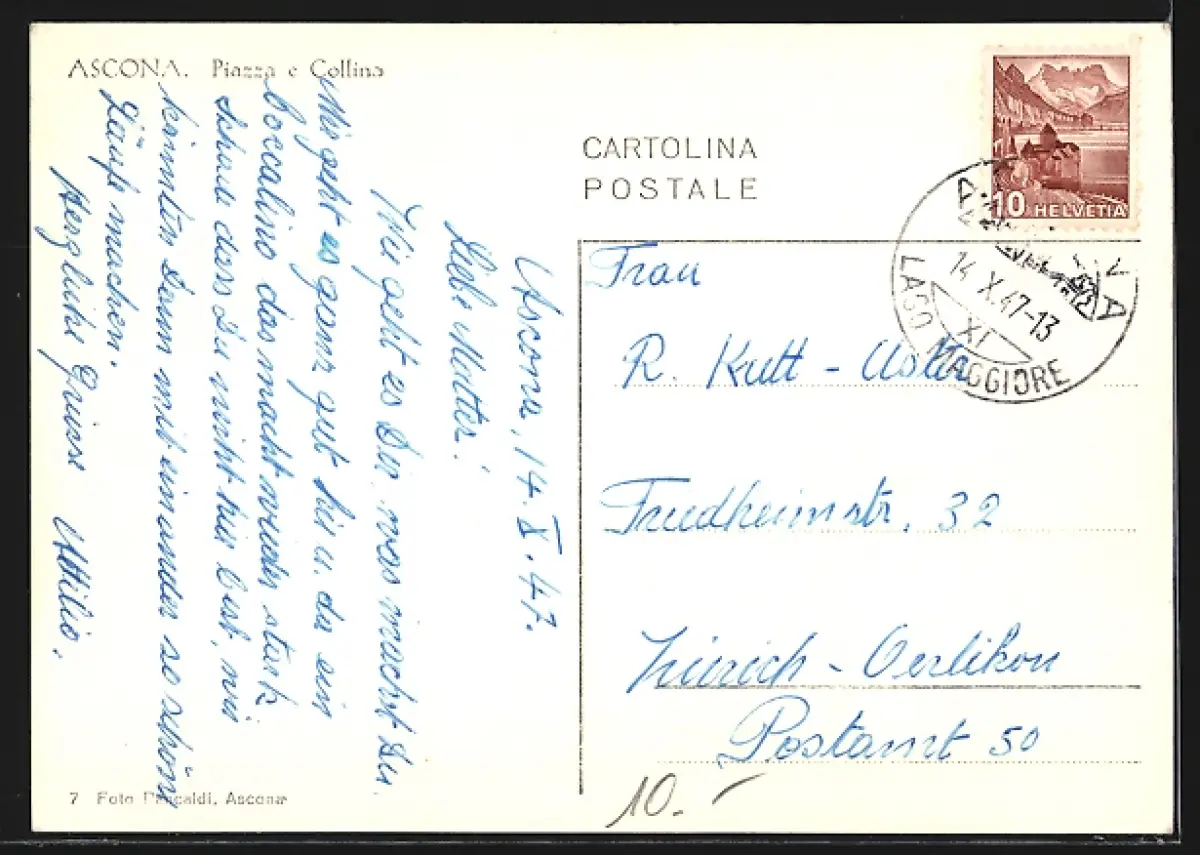 ASCONA. Piazza e Collina
CARTOLINA
POSTALE
10 HELVETIA
14.X.47-13
XI
LAGO MAGGIORE
Ascona, 14. X. 47.
Liebe Mutter!
Wie geht es Dir, was machst Du.
Mir geht es ganz gut hie u. da ein
Boccalino das macht wieder stark.
Schade dass Du nicht hier bist, wir
könnten dann mit einander so schöne
Läufe machen.
Herzliche Grüsse Attilio.
Frau
R. Kutt -
Friedheimstr. 32
Zürich - Oerlikon
Postamt 50
10.-
7 Foto Pancaldi, Ascona